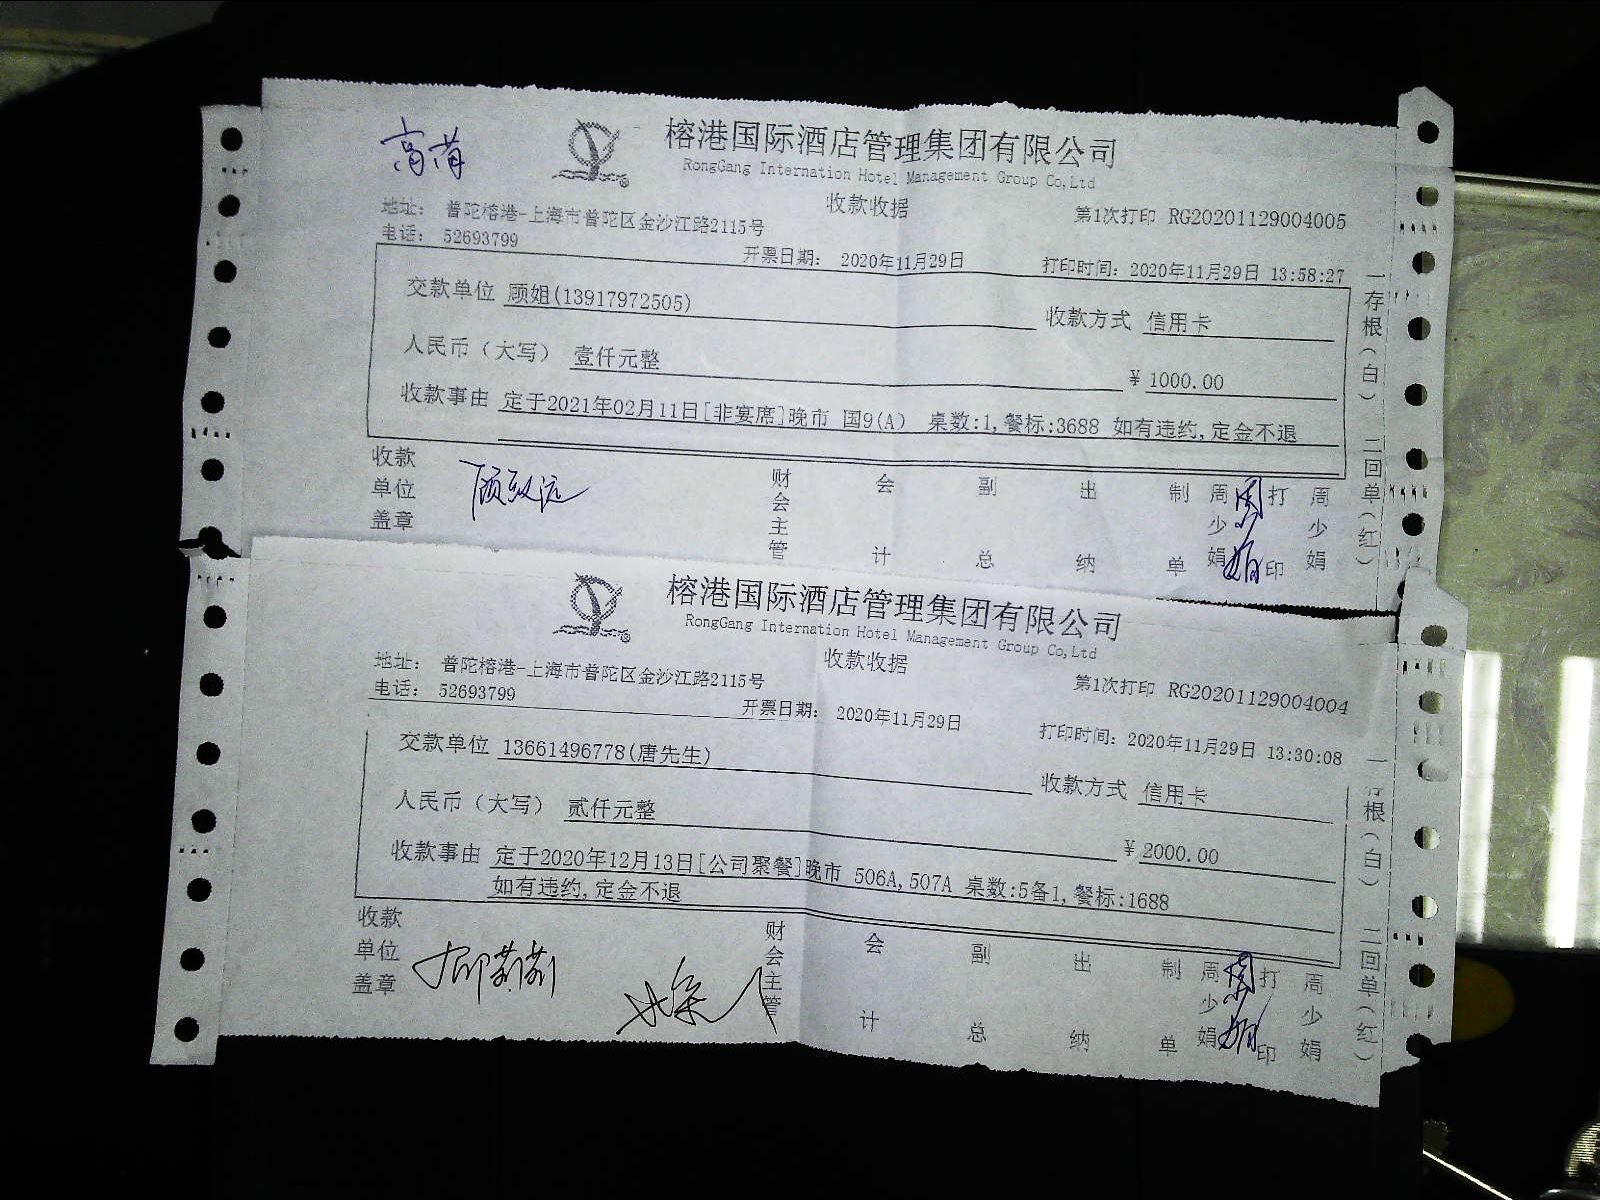 高菁
榕港国际酒店管理集团有限公司
RongGang Internation Hotel Management Group Co,Ltd
收款收据
地址: 普陀榕港-上海市普陀区金沙江路2115号
第1次打印 RG20201129004005
电话: 52693799
开票日期: 2020年11月29日
打印时间: 2020年11月29日 13:58:27
交款单位 顾姐(13917972505)
收款方式 信用卡
人民币（大写） 壹仟元整
¥ 1000.00
收款事由 定于2021年02月11日[非宴席]晚市 国9(A) 桌数:1,餐标:3688 如有违约,定金不退
一存根（白） 二回单（红）
收款单位盖章
财会主管 会计 副总 出纳 制单 周少娟 打印 周少娟
周少娟
榕港国际酒店管理集团有限公司
RongGang Internation Hotel Management Group Co,Ltd
收款收据
地址: 普陀榕港-上海市普陀区金沙江路2115号
第1次打印 RG20201129004004
电话: 52693799
开票日期: 2020年11月29日
打印时间: 2020年11月29日 13:30:08
交款单位 13661496778(唐先生)
收款方式 信用卡
人民币（大写） 贰仟元整
¥ 2000.00
收款事由 定于2020年12月13日[公司聚餐]晚市 506A,507A 桌数:5备1,餐标:1688
如有违约,定金不退
一存根（白） 二回单（红）
收款单位盖章
财会主管 会计 副总 出纳 制单 周少娟 打印 周少娟
周少娟